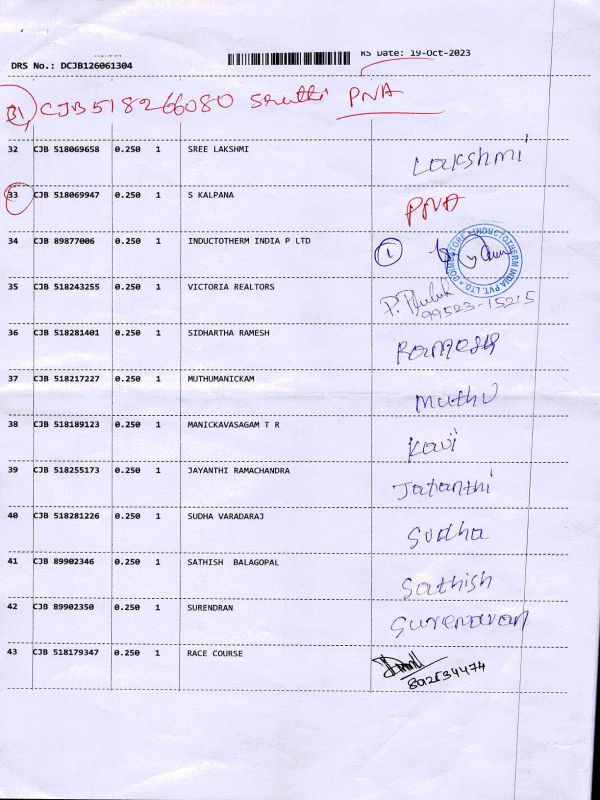 RS Date: 19-Oct-2023
DRS No.: DCJB126061304
31 CJB 518266080 Sruthi PNA
32 CJB 518069658 0.250 1 SREE LAKSHMI Lakshmi
33 CJB 518069947 0.250 1 S KALPANA PNA
34 CJB 89877006 0.250 1 INDUCTOTHERM INDIA P LTD 1
INDUCTOTHERM INDIA PVT. LTD. COIMBATORE
35 CJB 518243255 0.250 1 VICTORIA REALTORS
99523-15215
36 CJB 518281401 0.250 1 SIDHARTHA RAMESH Ramesh
37 CJB 518217227 0.250 1 MUTHUMANICKAM Muthu
38 CJB 518189123 0.250 1 MANICKAVASAGAM T R Kavi
39 CJB 518255173 0.250 1 JAYANTHI RAMACHANDRA Jayanthi
40 CJB 518281226 0.250 1 SUDHA VARADARAJ Sudha
41 CJB 89902346 0.250 1 SATHISH BALAGOPAL Sathish
42 CJB 89902350 0.250 1 SURENDRAN Surendran
43 CJB 518179347 0.250 1 RACE COURSE